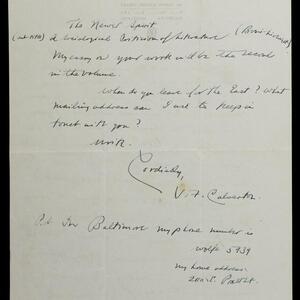 The Newer Spirit
A Sociological Criticism of Literature
My essay on your work will be the second
in the volume.
When do you leave for the East? What
mailing address can I use to keep in
touch with you?
Write.
Cordially,
V. F. Calverton
P.S. In Baltimore my phone number is
Wolfe 5939
my home address:
2110 E. Pratt St.